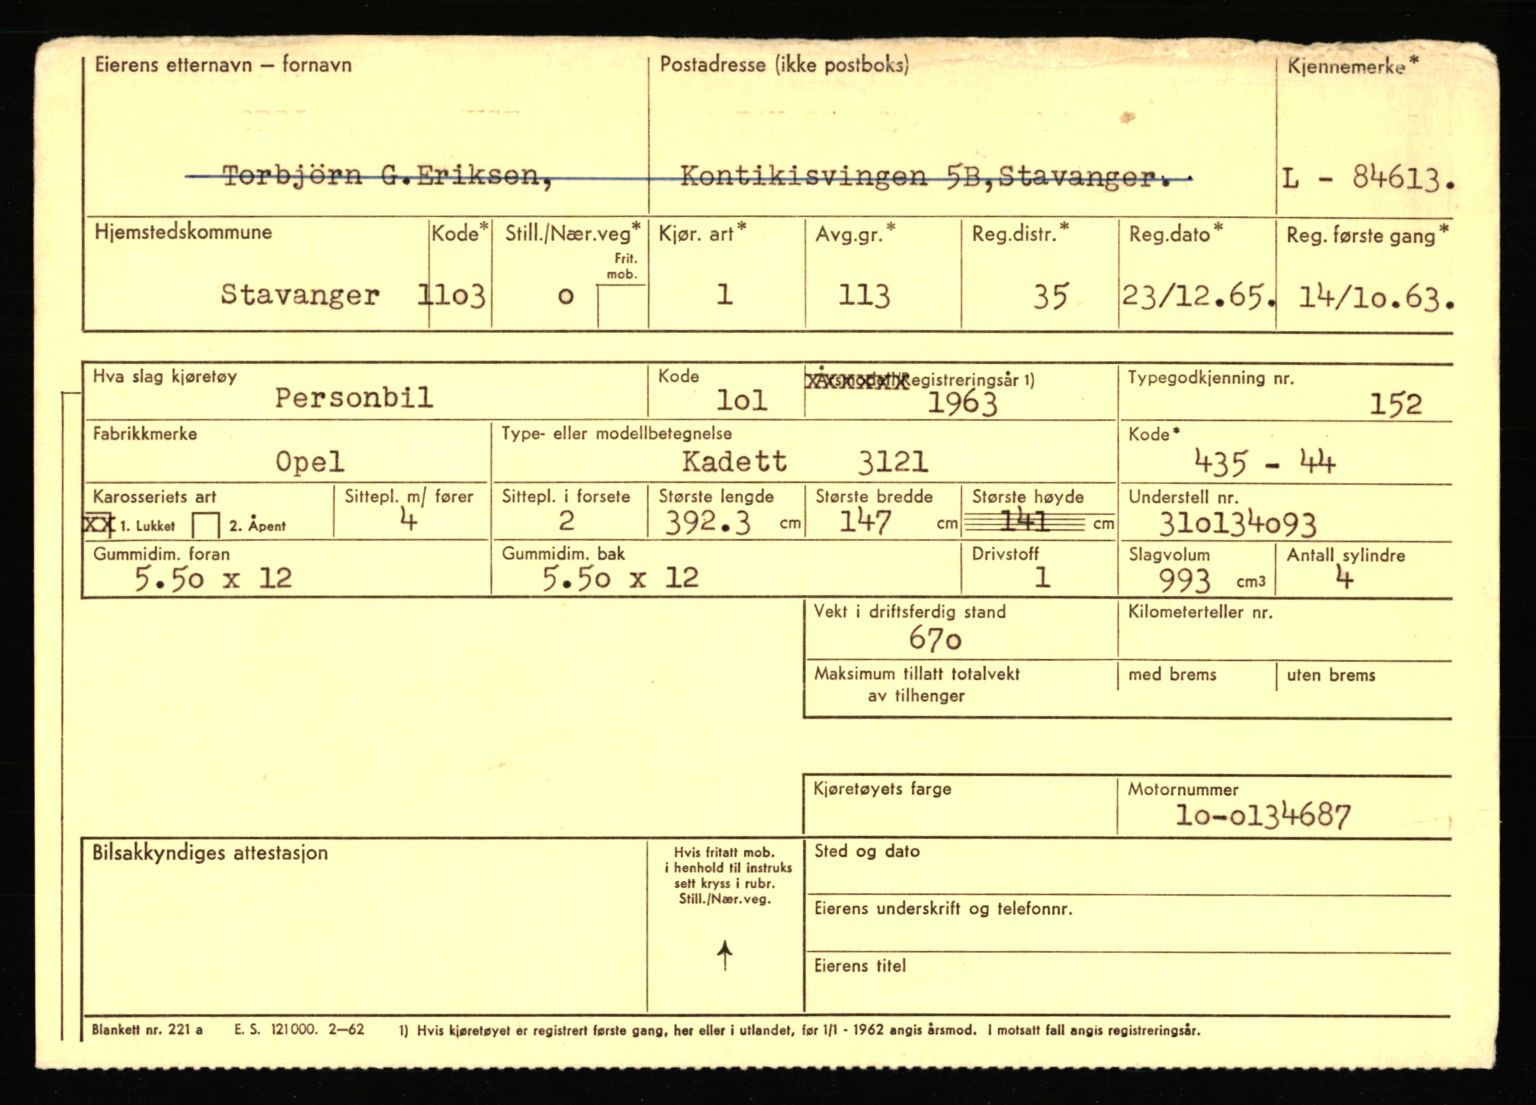 Eierens etternavn – fornavn Postadresse (ikke postboks) Kjennemerke*
Torbjörn G.Eriksen, Kontikisvingen 5B,Stavanger. L - 84613.
Hjemstedskommune Kode* Still./Nær.veg* Kjør. art* Avg.gr.* Reg.distr.* Reg.dato* Reg. første gang*
Frit.
mob.
Stavanger 11o3 o 1 113 35 23/12.65. 14/1o.63.
Hva slag kjøretøy Kode Årsmodell/Registreringsår 1) Typegodkjenning nr.
Personbil 1o1 1963 152
Fabrikkmerke Type- eller modellbetegnelse Kode*
Opel Kadett 3121 435 - 44
Karosseriets art Sittepl. m/ fører Sittepl. i forsete Største lengde Største bredde Største høyde Understell nr.
XX 1. Lukket 2. Åpent 4 2 392.3 cm 147 cm 141 cm 31o134o93
Gummidim. foran Gummidim. bak Drivstoff Slagvolum Antall sylindre
5.5o x 12 5.5o x 12 1 993 cm3 4
Vekt i driftsferdig stand Kilometerteller nr.
67o
Maksimum tillatt totalvekt med brems uten brems
av tilhenger
Kjøretøyets farge Motornummer
1o-o134687
Bilsakkyndiges attestasjon Hvis fritatt mob. Sted og dato
i henhold til instruks
sett kryss i rubr.
Still./Nær.veg.
Eierens underskrift og telefonnr.
Eierens titel
Blankett nr. 221 a E. S. 121000. 2–62 1) Hvis kjøretøyet er registrert første gang, her eller i utlandet, før 1/1 - 1962 angis årsmod. I motsatt fall angis registreringsår.